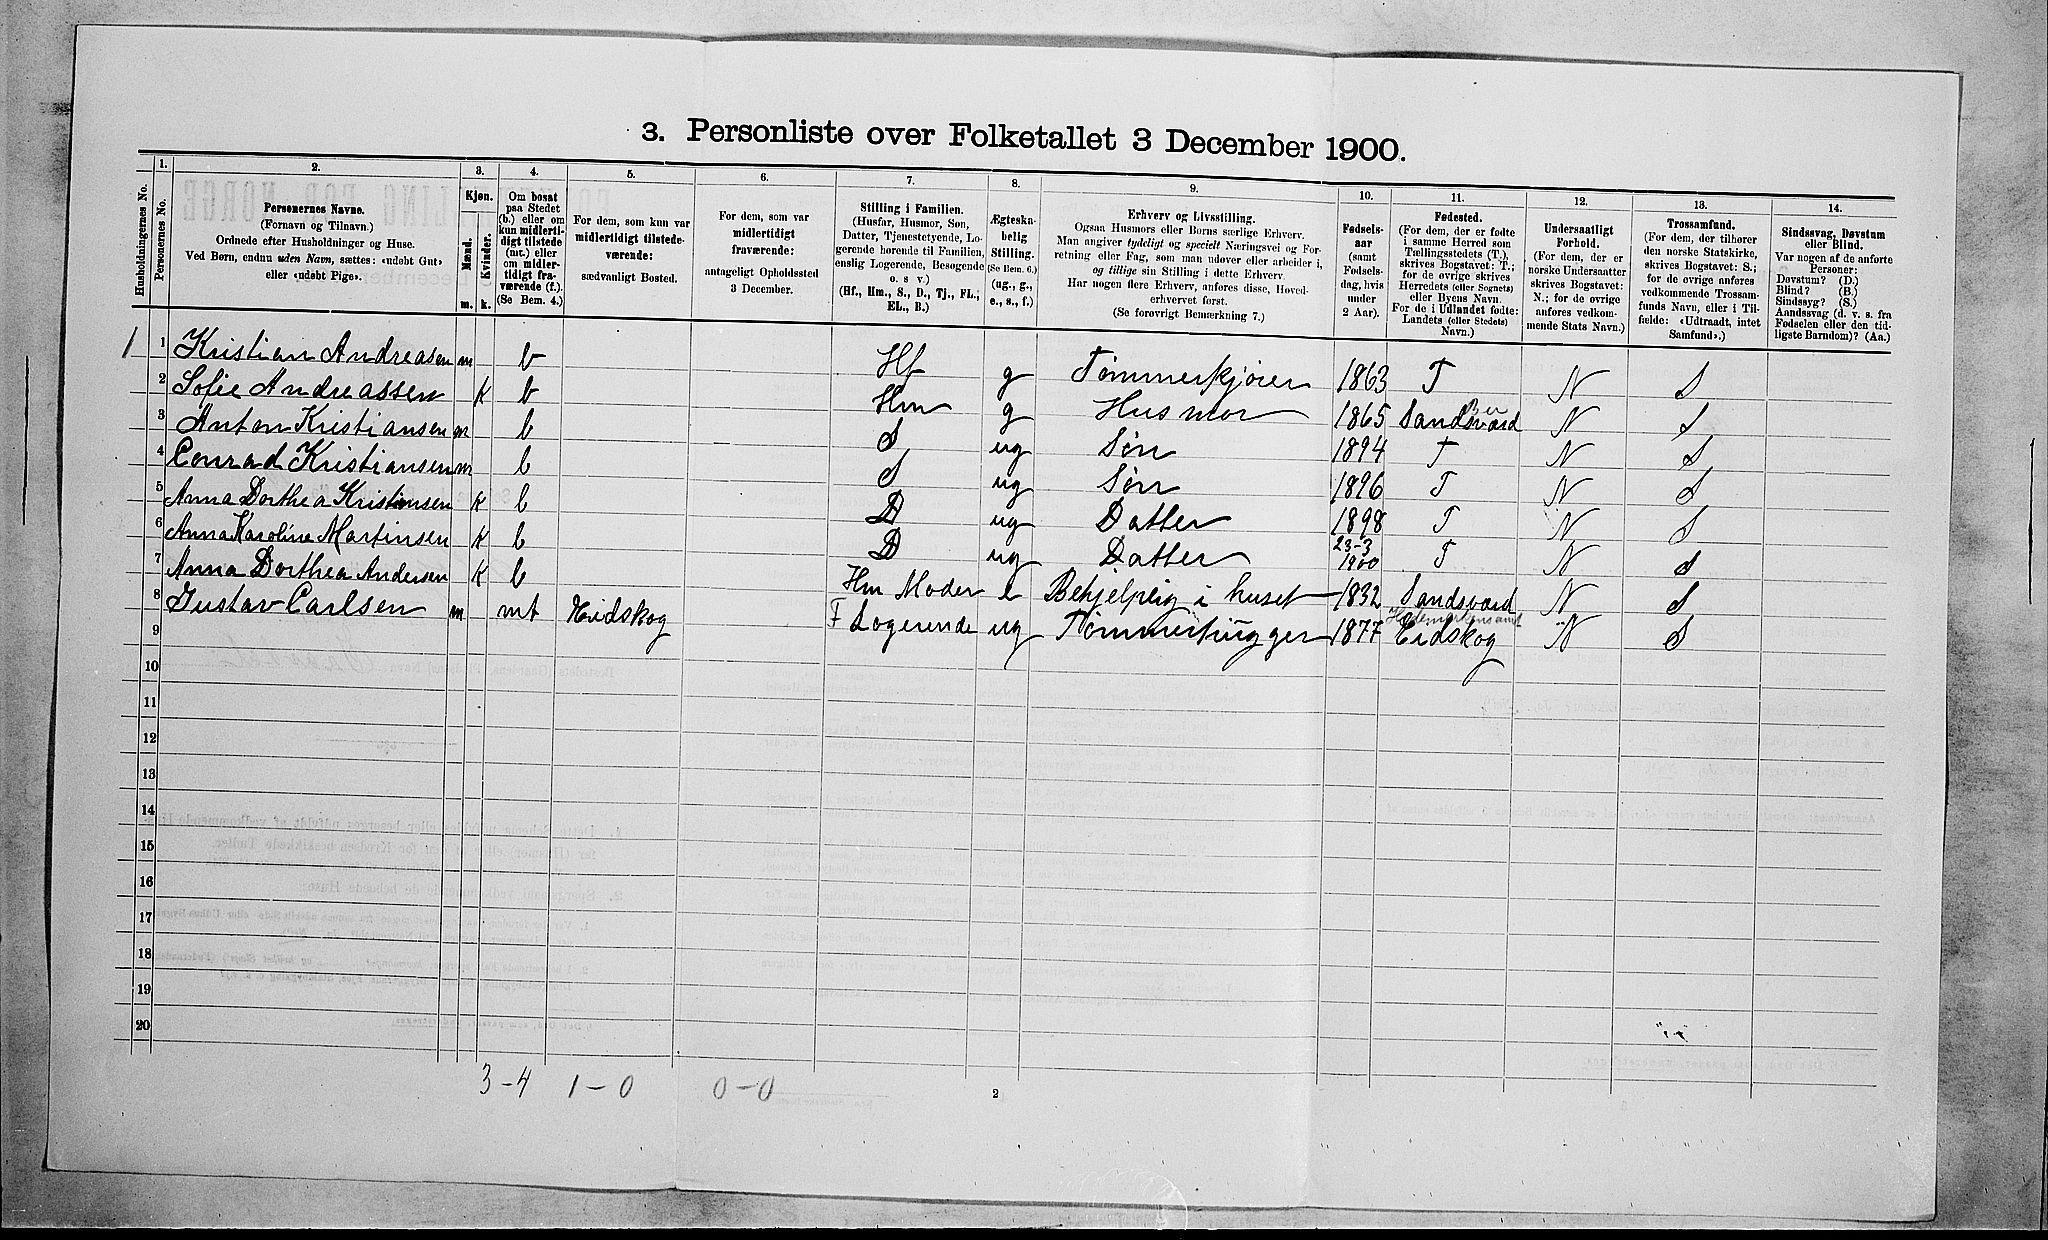 3. Personliste over Folketallet 3 December 1900.
1. 2. 3. 4. 5. 6. 7. 8. 9. 10. 11. 12. 13. 14.
Husholdningernes No.
Personernes No.
Personernes Navne.
(Fornavn og Tilnavn.)
Ordnede efter Husholdninger og Huse.
Ved Børn, endnu uden Navn, sættes: «udøbt Gut»
eller «udøbt Pige».
Kjøn.
Mænd.
Kvinder.
m. k.
Om bosat
paa Stedet
(b.) eller om
kun midlerti-
digt tilstede
(mt.) eller
om midler-
tidigt fra-
værende (f.).
(Se Bem. 4.)
For dem, som kun var
midlertidigt tilstede-
værende:
sædvanligt Bosted.
For dem, som var
midlertidigt
fraværende:
antageligt Opholdssted
3 December.
Stilling i Familien.
(Husfar, Husmor, Søn,
Datter, Tjenestetyende, Lo-
gerende hørende til Familien,
enslig Logerende, Besøgende
o. s. v.)
(Hf., Hm., S., D., Tj., FL.,
EL., B.)
Ægteska-
belig
Stilling.
(Se Bem. 6.)
(ug., g.,
e., s., f.)
Erhverv og Livsstilling.
Ogsaa Husmors eller Børns særlige Erhverv.
Man angiver tydeligt og specielt Næringsvei og For-
retning eller Fag, som man udøver eller arbeider i,
og tillige sin Stilling i dette Erhverv.
Har nogen flere Erhverv, anføres disse, Hoved-
erhvervet først.
(Se forøvrigt Bemærkning 7.)
Fødsels-
aar
(samt
Fødsels-
dag, hvis
under
2 Aar).
Fødested.
(For dem, der er fødte
i samme Herred som
Tællingsstedets (T.),
skrives Bogstavet: T.;
for de øvrige skrives
Herredets (eller Sognets)
eller Byens Navn.
For de i Udlandet fødte:
Landets (eller Stedets)
Navn.)
Undersaatligt
Forhold.
(For dem, der er
norske Undersaatter
skrives Bogstavet:
N.; for de øvrige
anføres vedkom-
mende Stats Navn.)
Trossamfund.
(For dem, der tilhører
den norske Statskirke,
skrives Bogstavet: S.;
for de øvrige anføres
vedkommende Trossam-
funds Navn, eller i Til-
fælde: «Udtraadt, intet
Samfund».)
Sindssvag, Døvstum
eller Blind.
Var nogen af de anførte
Personer:
Døvstum? (D.)
Blind? (B.)
Sindssyg? (S.)
Aandssvag (d. v. s. fra
Fødselen eller den tid-
ligste Barndom)? (Aa.)
1 1 Kristian Andreasen m b Hf g Tømmerkjører 1863 T N S
2 Sofie Andreassen K b Hm g Husmor 1865 Sandsværd N S
3 Anton Kristiansen m b S ug Søn 1894 T N S
4 Conrad Kristiansen m b S ug Søn 1896 T N S
5 Anna Dorthea Kristiansen K b D ug Datter 1898 T N S
6 Anna Karoline Martinsen K b D ug Datter 23-3 1900 T N S
7 Anna Dorthea Andersen K b Hm Moder e Behjelpeig i huset 1832 Sandsværd N S
8 Gustav Carlsen m mt Eidskog F Logerende ug Tømmerhugger 1877 Eidskog N S
Hedemarkens amt
9
10
11
12
13
14
15
16
17
18
19
20
3-4 1-0 0-0
2